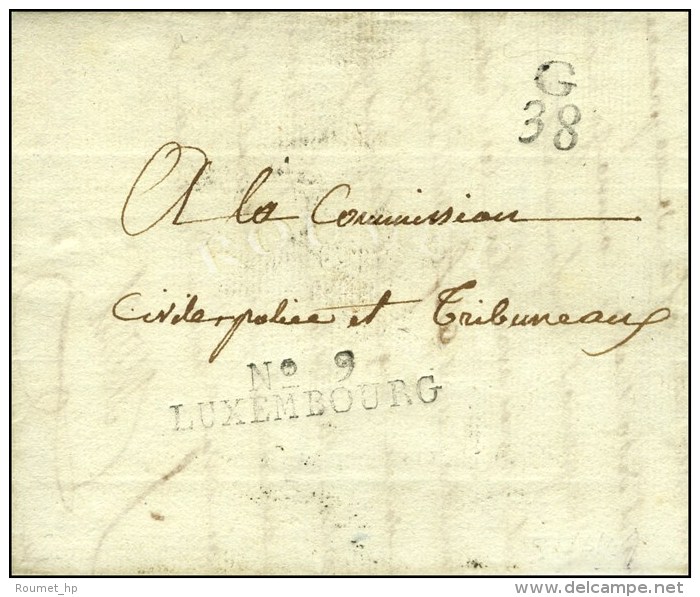 G
38
A la Commission
Civile police et Tribuneaux
Nº 9
LUXEMBOURG
Roumet_hp
www.delcampe.net